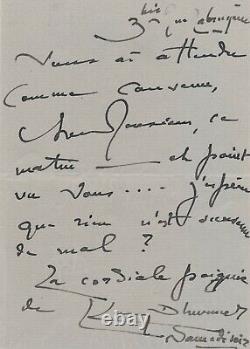 bis
3
Vous ai attendu
comme convenu,
cher Monsieur, ce
matin et point
vu vous.... j'espère
que rien n'est survenu
de mal ?
La cordiale poignée
de
Samedi soir